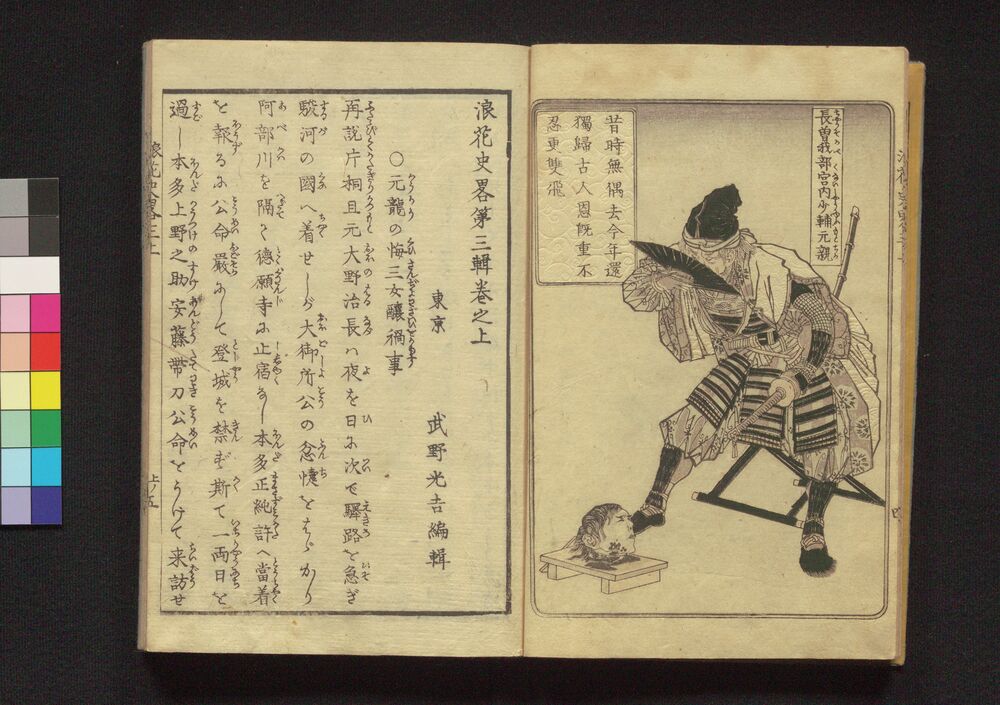 長曽我部宮内少輔元親
昔時無偶去今年還
獨歸古人恩既重不
忍更雙飛
浪花史畧第三輯巻之上
東京 武野光吉編輯
○元龍の悔三女醸禍事
再説片桐且元大野治長ハ夜を日に次で驛路を急ぎ
駿河の國へ着せしが大御所公の忿懥をはゞかり
阿部川を隔て徳願寺に止宿なし本多正純許へ當着
を報るに公命厳にして登城を禁ず斯て一両日を
過し本多上野之助安藤帯刀公命をうけて来訪せ
浪花史畧三上
上ノ五